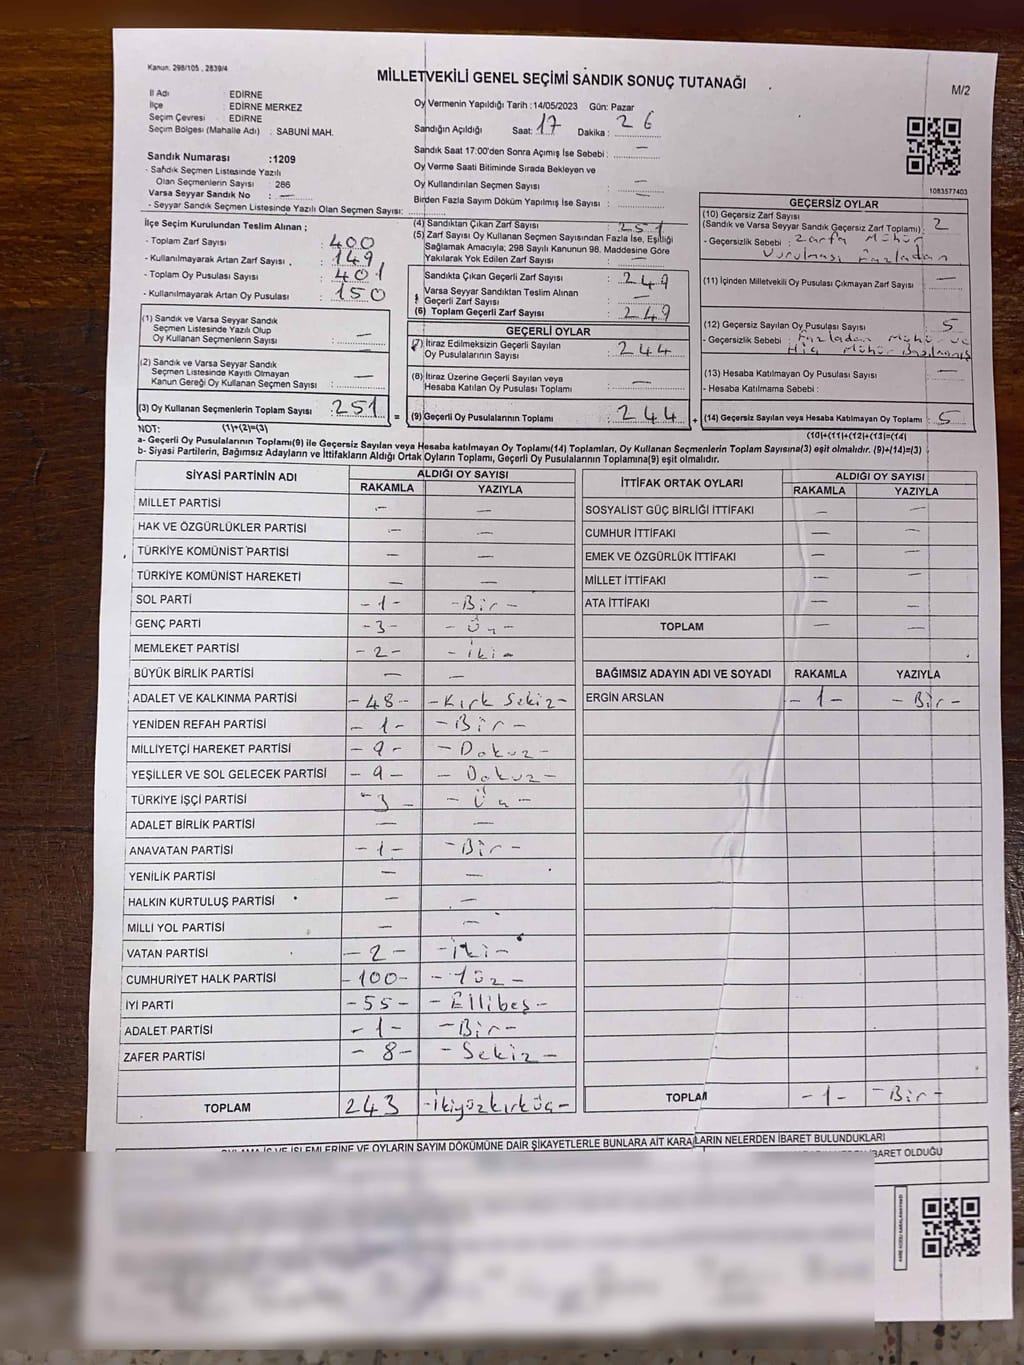 Kanun: 298/105 , 2839/4
MİLLETVEKİLİ GENEL SEÇİMİ SANDIK SONUÇ TUTANAĞI
M/2
İl Adı : EDİRNE
İlçe : EDİRNE MERKEZ
Seçim Çevresi : EDİRNE
Seçim Bölgesi (Mahalle Adı) : SABUNİ MAH.
Sandık Numarası :1209
- Sandık Seçmen Listesinde Yazılı
Olan Seçmenlerin Sayısı : 286
Varsa Seyyar Sandık No : —
- Seyyar Sandık Seçmen Listesinde Yazılı Olan Seçmen Sayısı:
Oy Vermenin Yapıldığı Tarih :14/05/2023 Gün: Pazar
Sandığın Açıldığı Saat: 17 Dakika : 26
Sandık Saat 17:00'den Sonra Açımış İse Sebebi : —
Oy Verme Saati Bitiminde Sırada Bekleyen ve
Oy Kullandırılan Seçmen Sayısı : —
Birden Fazla Sayım Döküm Yapılmış İse Sayısı : —
1083577403
İlçe Seçim Kurulundan Teslim Alınan ;
- Toplam Zarf Sayısı : 400
- Kullanılmayarak Artan Zarf Sayısı : 149
- Toplam Oy Pusulası Sayısı : 401
- Kullanılmayarak Artan Oy Pusulası : 150
(1) Sandık ve Varsa Seyyar Sandık
Seçmen Listesinde Yazılı Olup
Oy Kullanan Seçmenlerin Sayısı : —
(2) Sandık ve Varsa Seyyar Sandık
Seçmen Listesinde Kayıtlı Olmayan
Kanun Gereği Oy Kullanan Seçmen Sayısı : —
(3) Oy Kullanan Seçmenlerin Toplam Sayısı : 251
(4) Sandıktan Çıkan Zarf Sayısı : 251
(5) Zarf Sayısı Oy Kullanan Seçmen Sayısından Fazla İse, Eşitliği
Sağlamak Amacıyla; 298 Sayılı Kanunun 98. Maddesine Göre
Yakılarak Yok Edilen Zarf Sayısı : —
Sandıkta Çıkan Geçerli Zarf Sayısı : 249
Varsa Seyyar Sandıktan Teslim Alınan
Geçerli Zarf Sayısı : —
(6) Toplam Geçerli Zarf Sayısı : 249
GEÇERLİ OYLAR
(7) İtiraz Edilmeksizin Geçerli Sayılan
Oy Pusulalarının Sayısı : 244
(8) İtiraz Üzerine Geçerli Sayılan veya
Hesaba Katılan Oy Pusulası Toplamı : —
= (9) Geçerli Oy Pusulalarının Toplamı : 244
GEÇERSİZ OYLAR
(10) Geçersiz Zarf Sayısı
(Sandık ve Varsa Seyyar Sandık Geçersiz Zarf Toplamı) : 2
- Geçersizlik Sebebi : Zarfa Mühür
Vurulması Fazladan
(11) İçinden Milletvekili Oy Pusulası Çıkmayan Zarf Sayısı : —
(12) Geçersiz Sayılan Oy Pusulası Sayısı : 5
- Geçersizlik Sebebi : Fazladan Mühür ve
Hiç Mühür Basılmamış
(13) Hesaba Katılmayan Oy Pusulası Sayısı : —
- Hesaba Katılmama Sebebi :
+ (14) Geçersiz Sayılan veya Hesaba Katılmayan Oy Toplamı : 5
NOT: (1)+(2)=(3)
(10)+(11)+(12)+(13)=(14)
a- Geçerli Oy Pusulalarının Toplamı(9) ile Geçersiz Sayılan veya Hesaba katılmayan Oy Toplamı(14) Toplamları, Oy Kullanan Seçmenlerin Toplam Sayısına(3) eşit olmalıdır. (9)+(14)=(3)
b- Siyasi Partilerin, Bağımsız Adayların ve İttifakların Aldığı Ortak Oyların Toplamı, Geçerli Oy Pusulalarının Toplamına(9) eşit olmalıdır.
SİYASİ PARTİNİN ADI ALDIĞI OY SAYISI
RAKAMLA YAZIYLA
MİLLET PARTİSİ — —
HAK VE ÖZGÜRLÜKLER PARTİSİ — —
TÜRKİYE KOMÜNİST PARTİSİ — —
TÜRKİYE KOMÜNİST HAREKETİ — —
SOL PARTİ -1- -Bir-
GENÇ PARTİ -3- -Üç-
MEMLEKET PARTİSİ -2- -İki-
BÜYÜK BİRLİK PARTİSİ — —
ADALET VE KALKINMA PARTİSİ -48- -Kırk Sekiz-
YENİDEN REFAH PARTİSİ -1- -Bir-
MİLLİYETÇİ HAREKET PARTİSİ -9- -Dokuz-
YEŞİLLER VE SOL GELECEK PARTİSİ -9- -Dokuz-
TÜRKİYE İŞÇİ PARTİSİ -3- -Üç-
ADALET BİRLİK PARTİSİ — —
ANAVATAN PARTİSİ -1- -Bir-
YENİLİK PARTİSİ — —
HALKIN KURTULUŞ PARTİSİ — —
MİLLİ YOL PARTİSİ — —
VATAN PARTİSİ -2- -İki-
CUMHURİYET HALK PARTİSİ -100- -Yüz-
İYİ PARTİ -55- -Ellibeş-
ADALET PARTİSİ -1- -Bir-
ZAFER PARTİSİ -8- -Sekiz-
TOPLAM 243 -İkiyüzkırküç-
İTTİFAK ORTAK OYLARI ALDIĞI OY SAYISI
RAKAMLA YAZIYLA
SOSYALİST GÜÇ BİRLİĞİ İTTİFAKI — —
CUMHUR İTTİFAKI — —
EMEK VE ÖZGÜRLÜK İTTİFAKI — —
MİLLET İTTİFAKI — —
ATA İTTİFAKI — —
TOPLAM — —
BAĞIMSIZ ADAYIN ADI VE SOYADI RAKAMLA YAZIYLA
ERGİN ARSLAN -1- -Bir-
TOPLAM -1- -Bir-
İŞLEMLERİNE VE OYLARIN SAYIM DÖKÜMÜNE DAİR ŞİKAYETLERLE BUNLARA AİT KARARLARIN NELERDEN İBARET BULUNDUKLARI
İBARET OLDUĞU